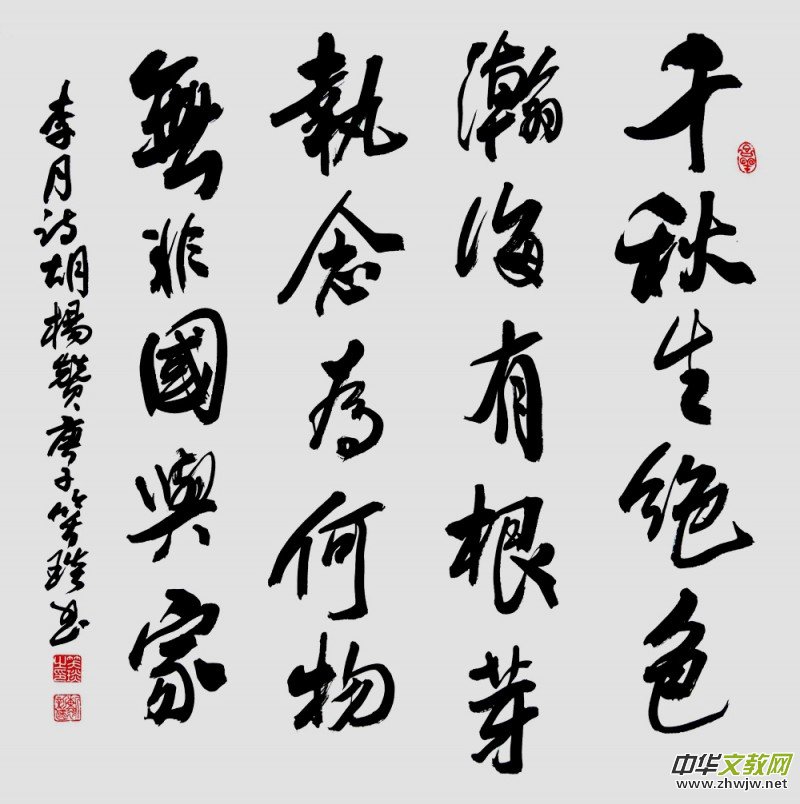 千秋生絕色
瀚海有根芽
執念為何物
無非國與家
李月诗胡楊贊庚子笑琰书
中华文教网
www.zhwjw.net